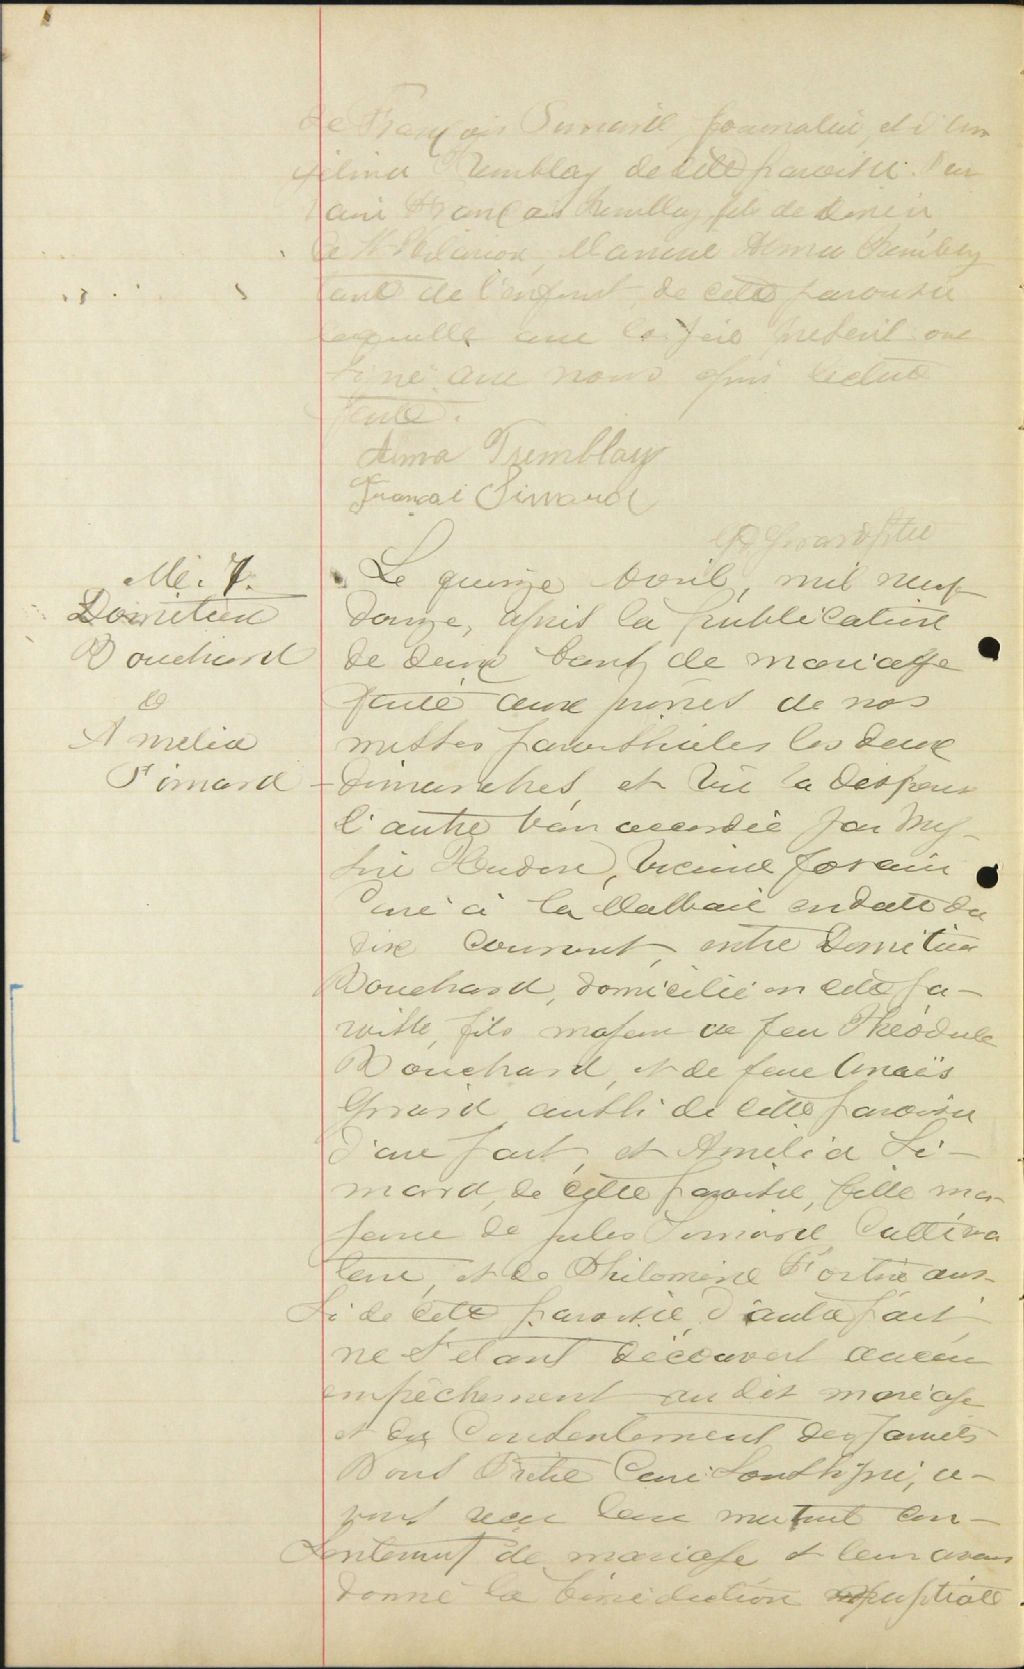 de François Simard, journalier, et d'
Tremblay, de cette paroisse. Par
rain François Tremblay fils de
de St Hilarion, Marraine Alma Tremblay
tante de l'enfant, de cette paroisse
laquelle avec le père présent ont
signé avec nous après lecture
faite.
Alma Tremblay
Francoi Simard
Ptre
M. 7.
Domitien
Bouchard
&
Amelia
Simard
Le quinze Avril, mil neuf
douze, après la publication
de deux bans de mariage
faite aux prônes de nos
messes paroissiales les deux
dimanches, et vu la dispense
l'autre ban accordée par Mes-
sire Hudon, Vicaire forain
Curé à la Malbaie en date du
dix courant, entre Domitien
Bouchard, domicilié en cette pa-
roisse, fils majeur de feu Théodule
Bouchard, et de feue Anaïs
Girard aussi de cette paroisse
d'une part, et Amelia Si-
mard, de cette paroisse, fille ma-
jeure de Jules Simard, Cultiva
teur, et de Philomène Fortin aus-
si de cette paroisse, d'autre part
ne s'étant découvert aucun
empêchement au dit mariage
et du Consentement des parents
Nous Prêtre Curé Soussigné, a-
vons reçu leur mutuel con-
sentement de mariage et leur avons
donné la bénédiction nuptiale